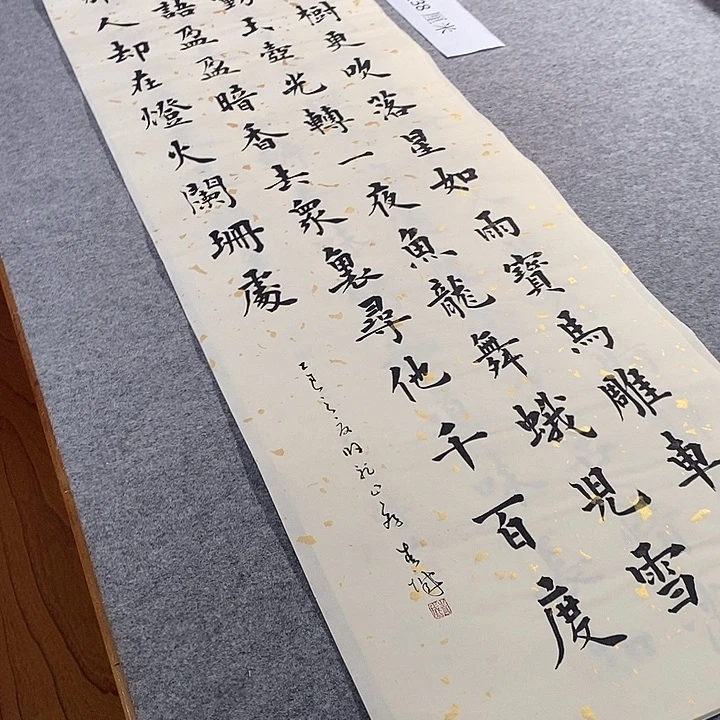 樹更吹落星如雨寶馬雕車
動玉壺光轉一夜魚龍舞蛾兒雪
語盈盈暗香去衆裏尋他千百度
那人却在燈火闌珊處
乙巳之夏
38厘米